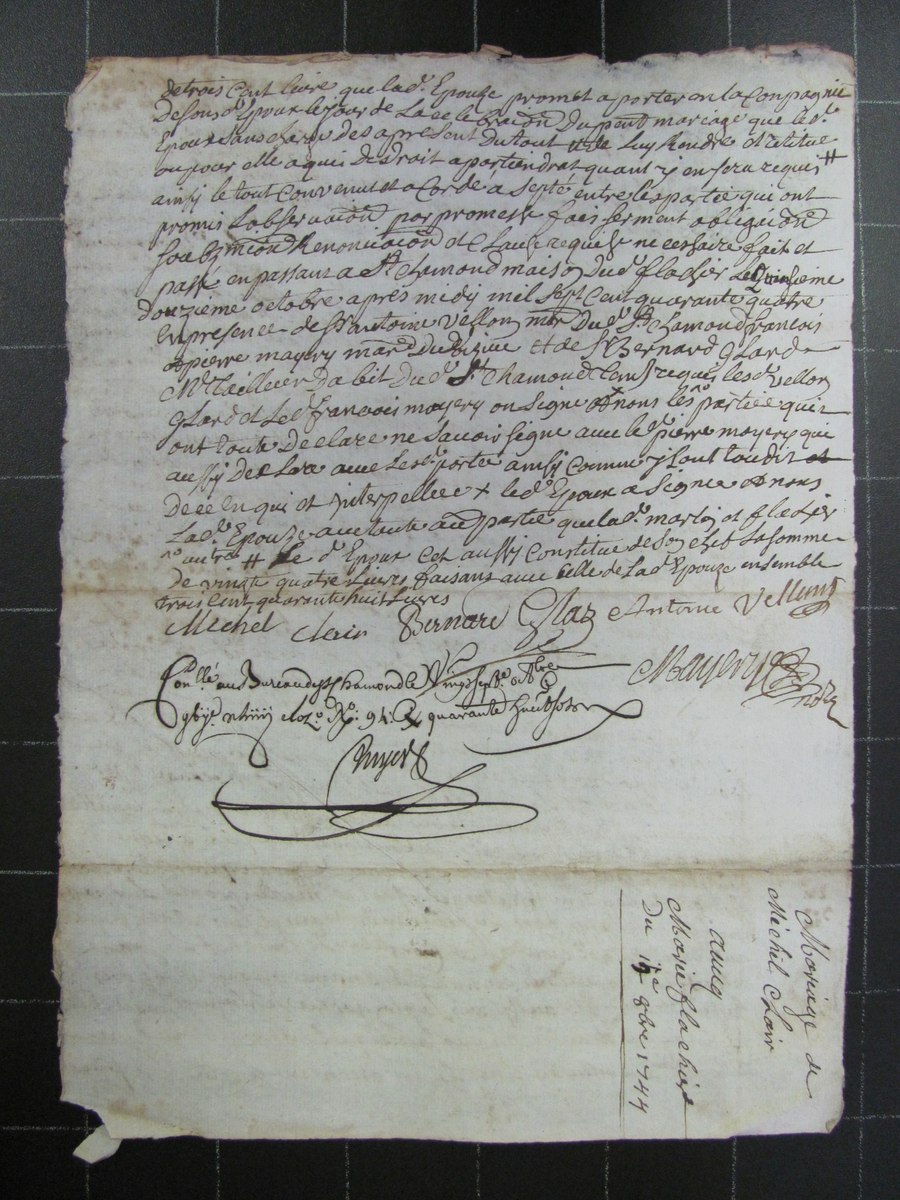 de trois cent livre que lad. Epouze promet aporter en la Conpagnie
De sond. Epoux le jour de La celebraõn Du pnt mariage que led.
Epoux sera charge des apresent Du tout et de Luy Rendre Restitue
ou pour elle a qui de droit apartiendrat quant il en sera requis #
ainsy le tout convenut et acorde a septe entre les partie qui ont
promis L'observaõn par promesse faes serment obligaõn
soubzmiõn Renonciaõn et clause requise necessaire fait et
passe en passans a St. chamond maison dud. flachier Le Quinzieme
douzieme octobre apres midy mil sept cent quarante quatre
en presence de Sr antoine Vellon mar. Dud. St. chamond francois
et pierre mayery mard. Du et de Sr Bernard Glard
Mre Tailleur D'abit Dud. St. chamond requis lesd. vellon
Glard et Led. francois mayery on Signe et nons les partie quy
ont toute De clare ne savoir signe avec led. pierre mayery qui
aussy declare avec lesd. partie ainsy comme
de ce enqui et interpellee x led. Epoux a Signe et nons
Lad. Epouze autoute aue partie que lad. martoy et flachier
# Le d. Epoux cet aussy Constitue de son chef La somme
De vingt quatre Livres faisans avec celle de Lad. Epouze ensemble
trois cent quarante huit Livres
Michel clair Bernard Glar Antoine Vellon
Mayery
Conllé au Bureau de St. chamond le Vingt sept 8bre
quarante huit sols
Mariage de
Michel Clair
avecq
Marie flachier
Du 8bre 1744